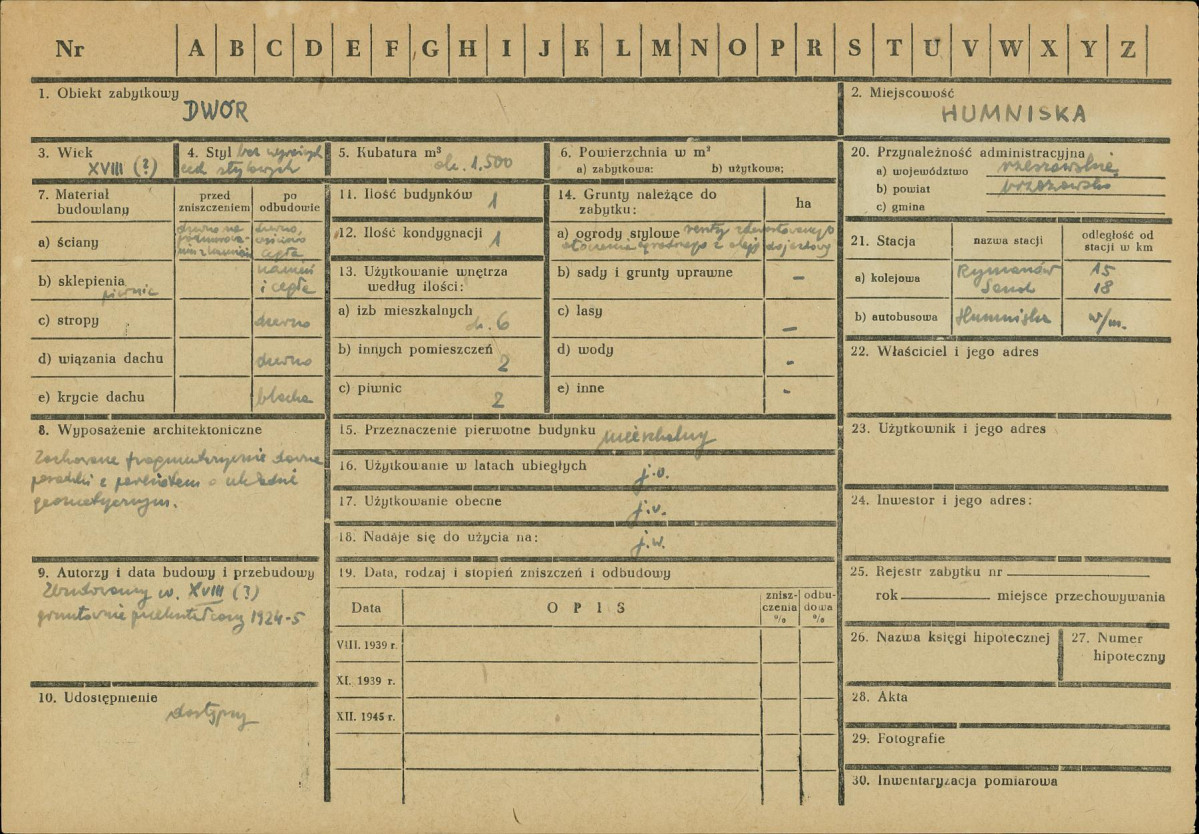 Nr A B C D E F G H I J K L M N O P R S T U V W X Y Z
1. Obiekt zabytkowy
DWÓR
2. Miejscowość
HUMNISKA
3. Wiek
XVIII (?)
4. Styl bez wyraźnych
cech stylowych
5. Kubatura m³
ok. 1.500
6. Powierzchnia w m²
a) zabytkowa: b) użytkowa:
20. Przynależność administracyjna
a) województwo rzeszowskie
b) powiat brzozowski
c) gmina
7. Materiał
budowlany
przed
zniszczeniem
po
odbudowie
a) ściany
drewno na
drewno,
cegła
b) sklepienia
piwnic
kamień
i cegła
c) stropy
drewno
d) wiązania dachu
drewno
e) krycie dachu
blacha
11. Ilość budynków 1
12. Ilość kondygnacji 1
13. Użytkowanie wnętrza
według ilości:
a) izb mieszkalnych
ok. 6
b) innych pomieszczeń
2
c) piwnic
2
14. Grunty należące do
zabytku:
ha
a) ogrody stylowe resztki zdewastowanego
b) sady i grunty uprawne -
c) lasy -
d) wody -
e) inne -
21. Stacja
nazwa stacji
odległość od
stacji w km
a) kolejowa
Rymanów 15
Sanok 18
b) autobusowa Humniska w/m.
22. Właściciel i jego adres
8. Wyposażenie architektoniczne
Zachowane fragmentarycznie dawne
posadzki z parkietem o układzie
geometrycznym.
15. Przeznaczenie pierwotne budynku mieszkalny
16. Użytkowanie w latach ubiegłych
j.w.
17. Użytkowanie obecne
j.w.
18. Nadaje się do użycia na:
j.w.
23. Użytkownik i jego adres
24. Inwestor i jego adres:
9. Autorzy i data budowy i przebudowy
Zbudowany w. XVIII (?)
gruntownie przekształcony 1924-5
19. Data, rodzaj i stopień zniszczeń i odbudowy
Data
OPIS
znisz-
czenia
%
odbu-
dowa
%
VIII. 1939 r.
XI. 1939 r.
XII. 1945 r.
25. Rejestr zabytku nr
rok miejsce przechowywania
26. Nazwa księgi hipotecznej
27. Numer
hipoteczny
10. Udostępnienie
dostępny
28. Akta
29. Fotografie
30. Inwentaryzacja pomiarowa